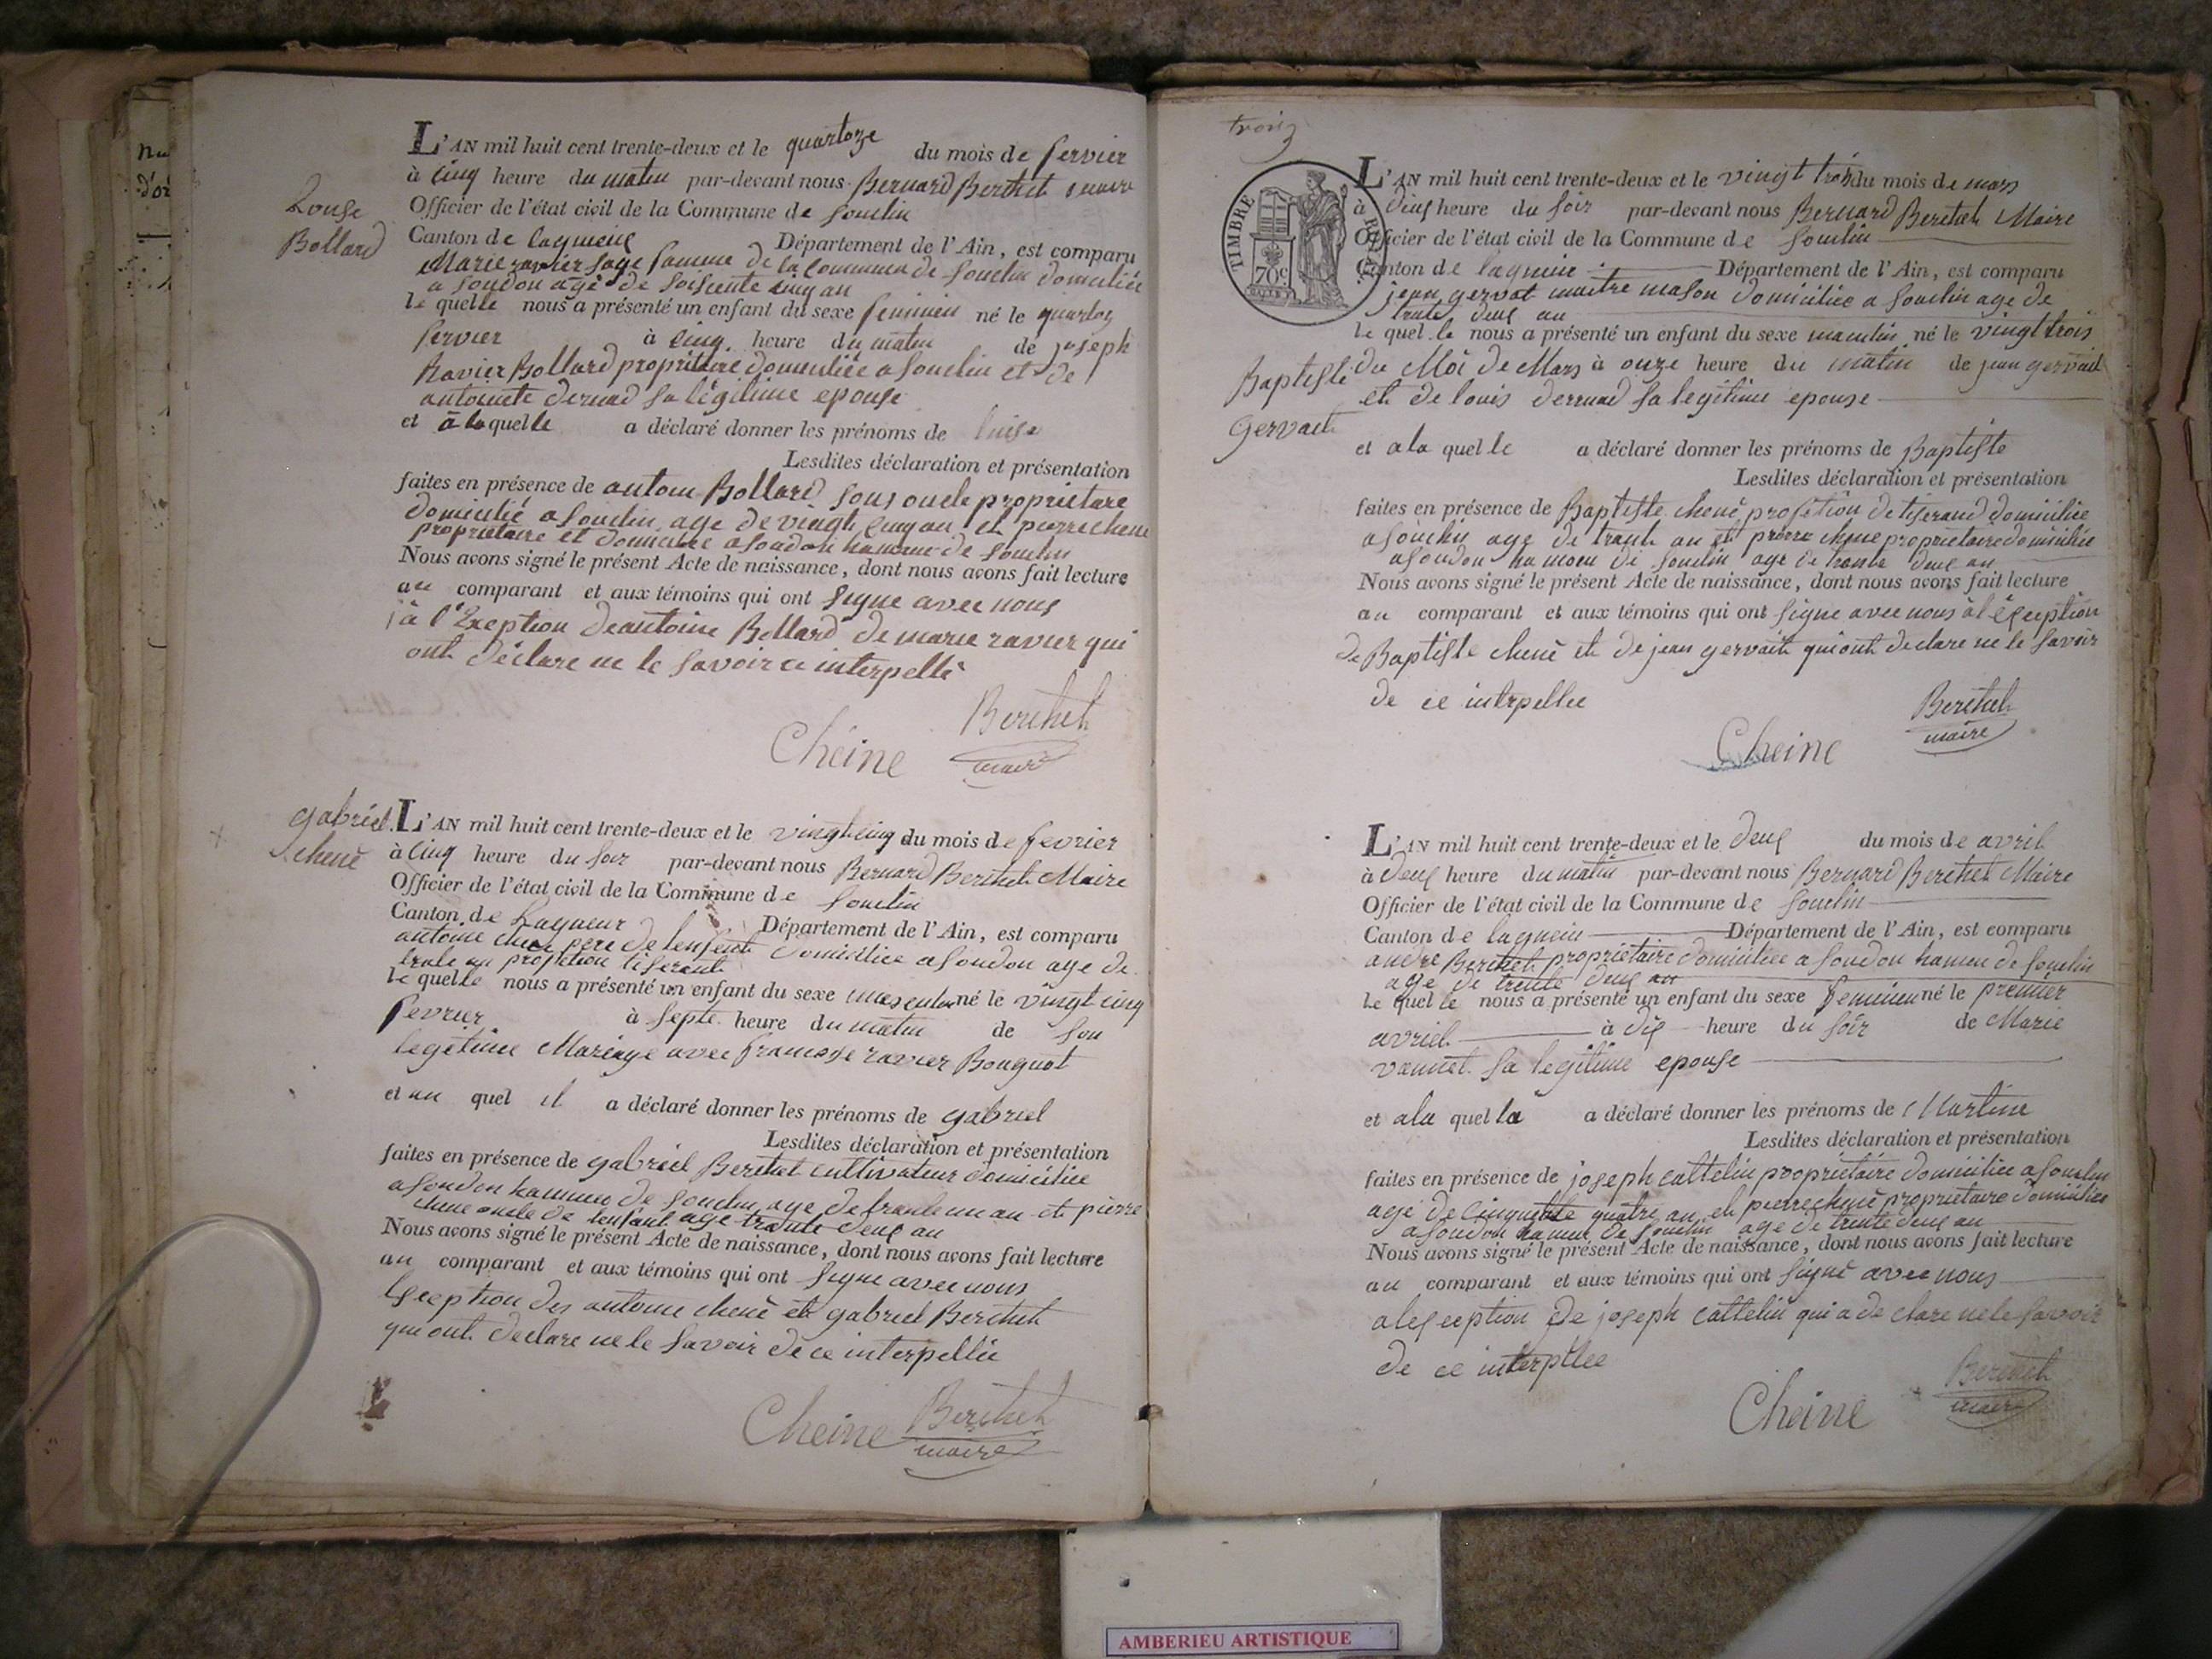 nu
d'or
L'AN mil huit cent trente-deux et le quartoze du mois de fervier
à cinq heure du matin par-devant nous Bernard Berthet
Officier de l'état civil de la Commune de Souclin
Canton de lagnieu Département de l'Ain, est comparu
Marie ravier sage famme de la commune de Souclin domicilié
a soudon agé de soissente cinq an
le quelle nous a présenté un enfant du sexe feminien né le quartoz
fervier à cinq heure du matin de joseph
Ravier Bollard propriétaire domicilié a Souclin et de
antoinete dernad sa légitime epouse
et à la quelle a déclaré donner les prénoms de luise
Lesdites déclaration et présentation
faites en présence de antoin Bollard sous oncle proprietare
domicilié a Souclin age de vingt cinq an et pierre chene
propriétaire et domicilié a soudon hameue de Souclin
Nous avons signé le présent Acte de naissance, dont nous avons fait lecture
au comparant et aux témoins qui ont signe avec nous
à l'Exeption de antoine Bollard de marie ravier qui
ont déclare ne le savoir ce interpellé
Berthet
Chéine maire
Louse
Bollard
gabriel
chenè
L'AN mil huit cent trente-deux et le vingt cinq du mois de fevrier
à cinq heure du soir par-devant nous Bernard Berthet Maire
Officier de l'état civil de la Commune de Souclin
Canton de Lagneur Département de l'Ain, est comparu
antoine chene père de lenfent domicilice a soudon age de
trale an profetion tiserent
le quelle nous a présenté un enfant du sexe masculin né le vingt cinq
fevrier à septe heure du matin de son
legetime Mariage avec francoise ravier Bougnot
et au quel il a déclaré donner les prénoms de gabriel
Lesdites déclaration et présentation
faites en présence de gabriel Berthet cultivateur domicilice
a soudon hammeu de Souclin age de trante un an et pièrre
chene oncle de lenfant age trante deus an
Nous avons signé le présent Acte de naissance, dont nous avons fait lecture
au comparant et aux témoins qui ont signe avec nous
lesception des antoine chenè et gabriel Berthet
qui ont declare ne le savoir de ce interpellée
Cheine Berthet
maire
troiz
TIMBRE ROYAL
70c
L'AN mil huit cent trente-deux et le vingt trois du mois de mars
à deus heure du soir par-devant nous Bernard Berthet Maire
Officier de l'état civil de la Commune de Souclin
Canton de lagnieu Département de l'Ain, est comparu
jean gervat maitre mason domicilice a Souclin age de
trate deus an
le quel le nous a présenté un enfant du sexe masculin né le vingt trois
du Moi de Mars à onze heure du matin de jean gervait
et de louis dernad sa legitime epouse
et a la quel le a déclaré donner les prénoms de Baptiste
Lesdites déclaration et présentation
faites en présence de Baptiste chenè profetion de tiserand domicilice
a Souclin age de trante an et pierre chene proprietaire domicilice
a soudon ha moeu de Souclin age de trante deus an
Nous avons signé le présent Acte de naissance, dont nous avons fait lecture
au comparant et aux témoins qui ont signe avec nous à l'esception
de Baptiste chenè et de jean gervait qui ont declare ne le savoir
de ce intrpellee
Berthet
Cheine maire
Baptiste
gervait
L'AN mil huit cent trente-deux et le deus du mois de avril
à deus heure du matin par-devant nous Bernard Berthet Maire
Officier de l'état civil de la Commune de Souclin
Canton de lagneiu Département de l'Ain, est comparu
andre Berthet propriétaire domicilice a soudon hameu de Souclin
age de trente deus an
le quel le nous a présenté un enfant du sexe feminien né le premier
avriel à dis heure du soir de Marie
vannet sa legitime epouse
et a la quel la a déclaré donner les prénoms de Martine
Lesdites déclaration et présentation
faites en présence de joseph cattelin propriétaire domicilice a Souclin
age de cinquente quatre an et pierre chenè proprietaire domicilice
a soudon hameu de Souclin age de trente deus an
Nous avons signé le présent Acte de naissance, dont nous avons fait lecture
au comparant et aux témoins qui ont signè avec nous
a lesception de joseph cattelin qui a de clare ne le savoir
de ce interpllee
Berthet
Cheine maire
AMBERIEU ARTISTIQUE